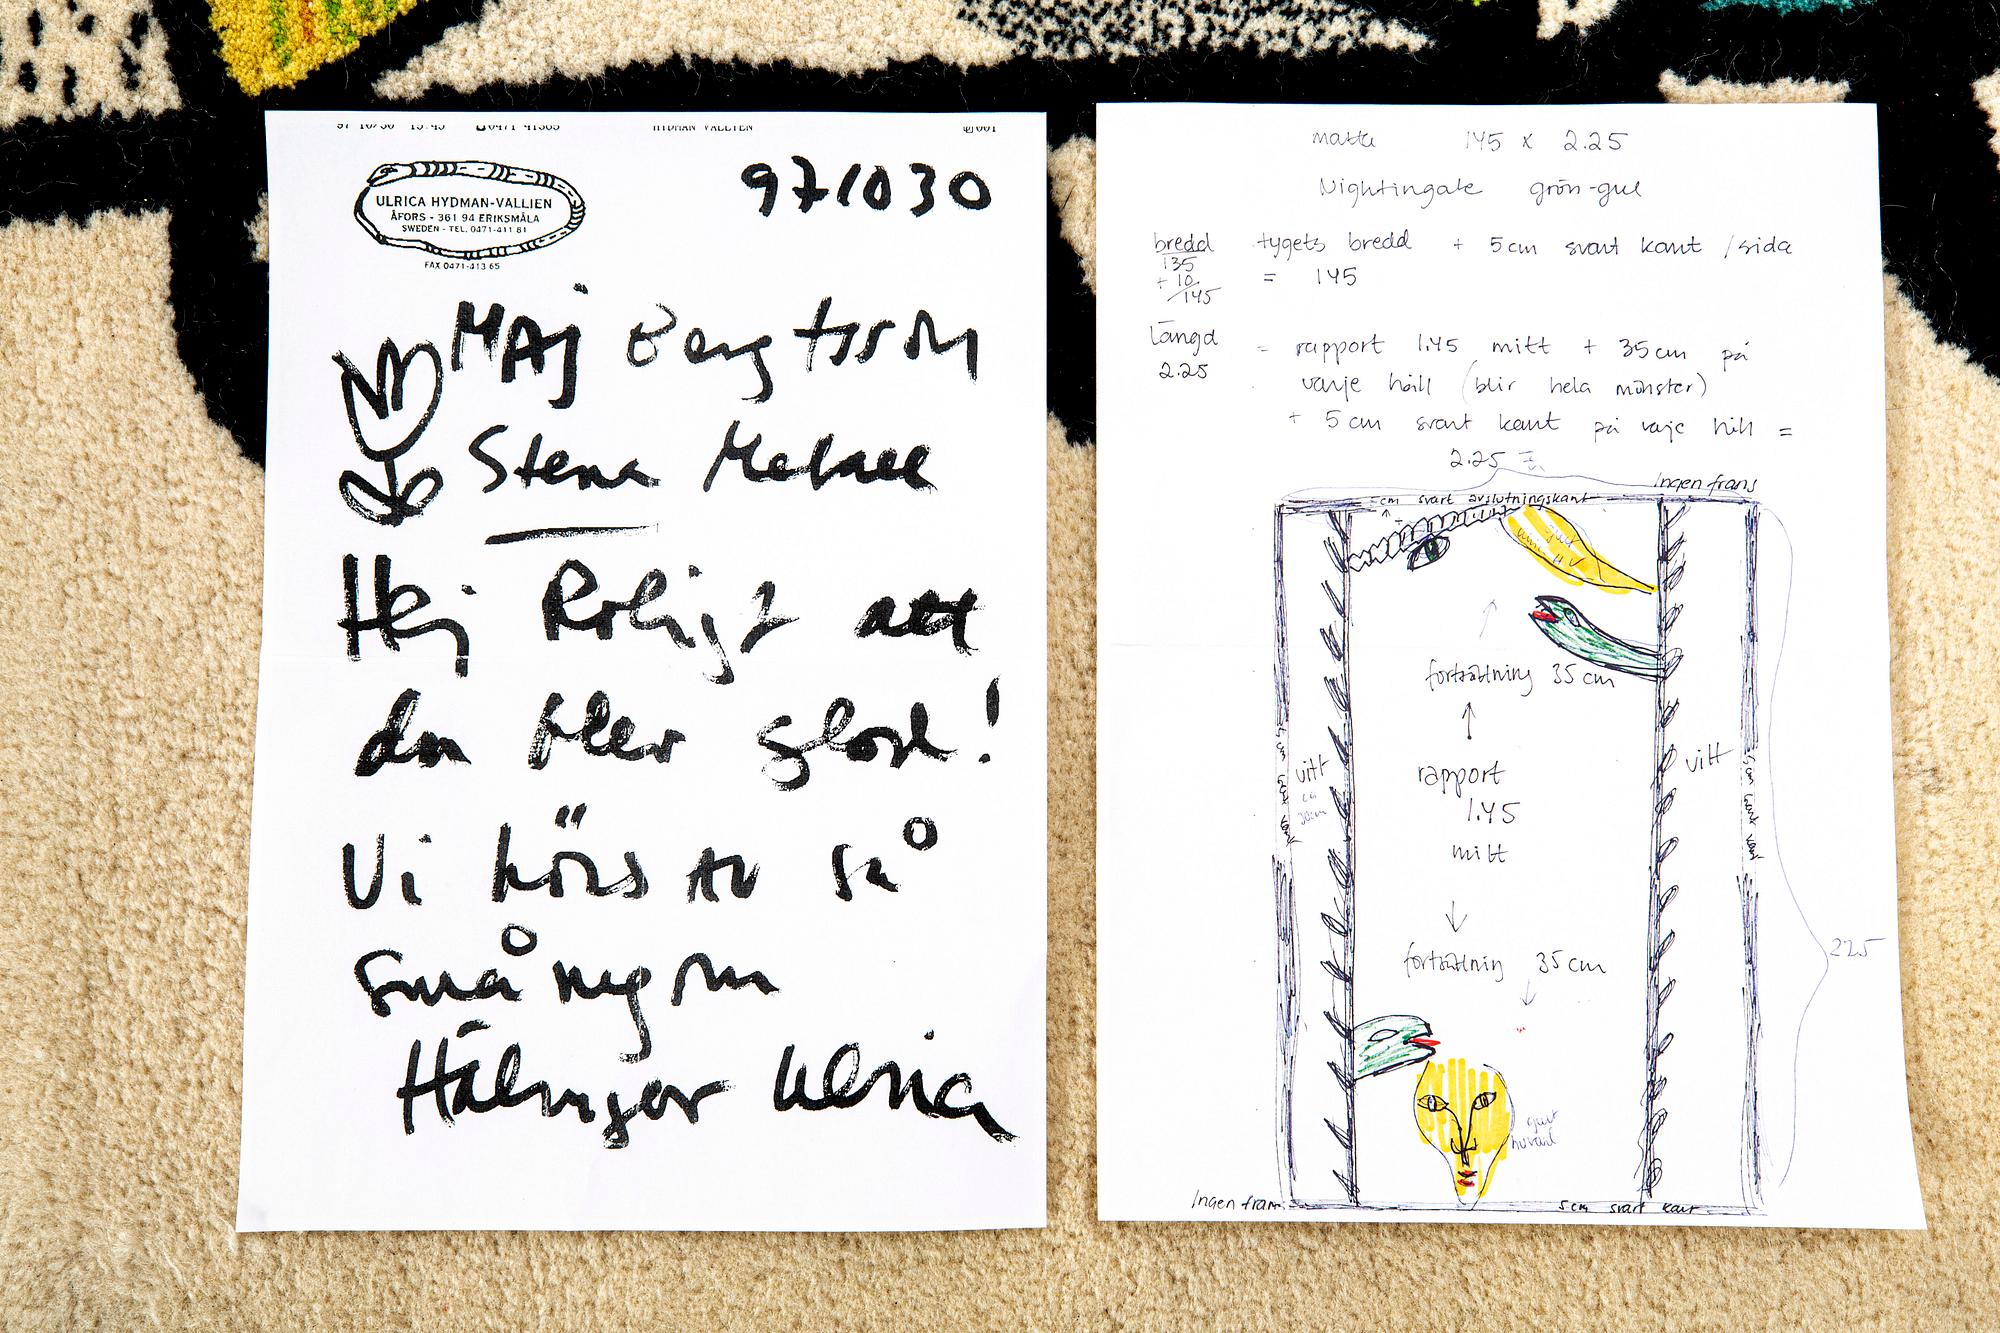 97 10/30 15:45 0471 41365 HYDMAN VALLIEN 001
ULRICA HYDMAN-VALLIEN
ÅFORS - 361 94 ERIKSMÅLA
SWEDEN - TEL. 0471-411 81
FAX 0471-413 65
971030
MAJ Bengtsson
Stena Metall
Hej Roligt att
du blev glad!
Vi hörs av så
småningom
Hälningar Ulrica
matta 145 x 2.25
Nightingale grön-gul
bredd tygets bredd + 5 cm svart kant / sida
135
+ 10
145
= 145
längd = rapport 1.45 mitt + 35 cm på
2.25 varje håll (blir hela mönster)
+ 5 cm svart kant på varje håll =
2.25
Ingen frans
cm svart avslutningskant
gult
fortsättning 35 cm
rapport
1.45
mitt
vitt
ca
30cm
vitt
5 cm svart kant
225
fortsättning 35 cm
gult
huvud
Ingen frans
5 cm svart kant